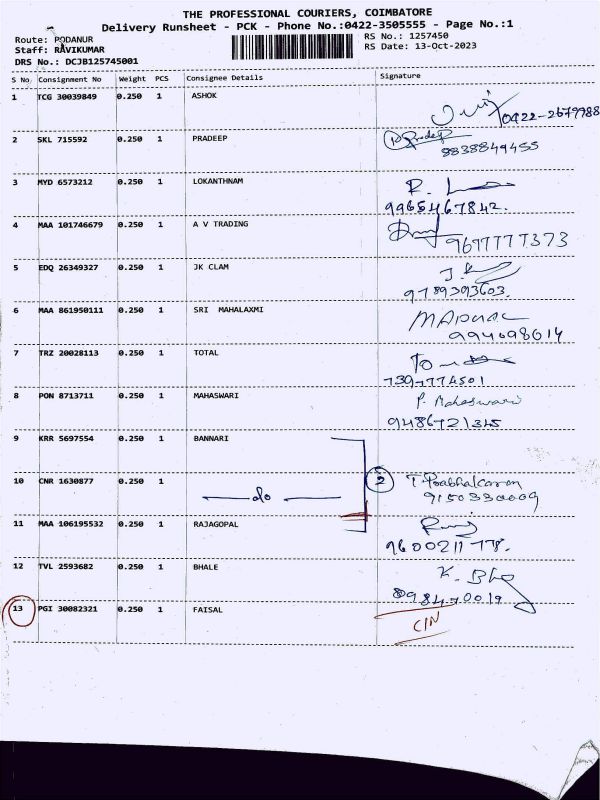 THE PROFESSIONAL COURIERS, COIMBATORE
Delivery Runsheet - PCK - Phone No.:0422-3505555 - Page No.:1
Route: PODANUR
RS No.: 1257450
Staff: RAVIKUMAR
RS Date: 13-Oct-2023
DRS No.: DCJB125745001
S No Consignment No Weight PCS Consignee Details Signature
1 TCG 30039849 0.250 1 ASHOK
0422-2679988
2 SKL 715592 0.250 1 PRADEEP Pradeep
9838849455
3 MYD 6573212 0.250 1 LOKANTHNAM R.
9965467842.
4 MAA 101746679 0.250 1 A V TRADING
9677777373
5 EDQ 26349327 0.250 1 JK CLAM J.K
9789393603.
6 MAA 861950111 0.250 1 SRI MAHALAXMI
994098614
7 TRZ 20028113 0.250 1 TOTAL
7397774501
8 PON 8713711 0.250 1 MAHASWARI P. Mahaswari
9486721345
9 KRR 5697554 0.250 1 BANNARI
10 CNR 1630877 0.250 1 do 2 T. Prabhakaran
9150330009
11 MAA 106195532 0.250 1 RAJAGOPAL
9600211778.
12 TVL 2593682 0.250 1 BHALE K. Bha
898470019
13 PGI 30082321 0.250 1 FAISAL
CIN